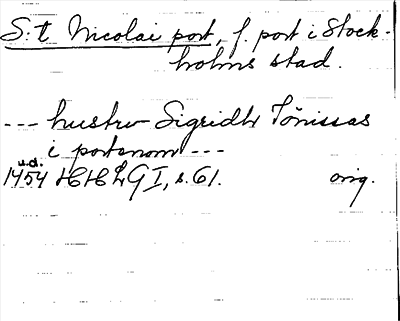 S:t Nicolai port, f. port i Stock-
holms stad.
--- hustrv Sigridh Tönissas
i portenom ---
u.d.
1454 HH G I, s. 61. orig.